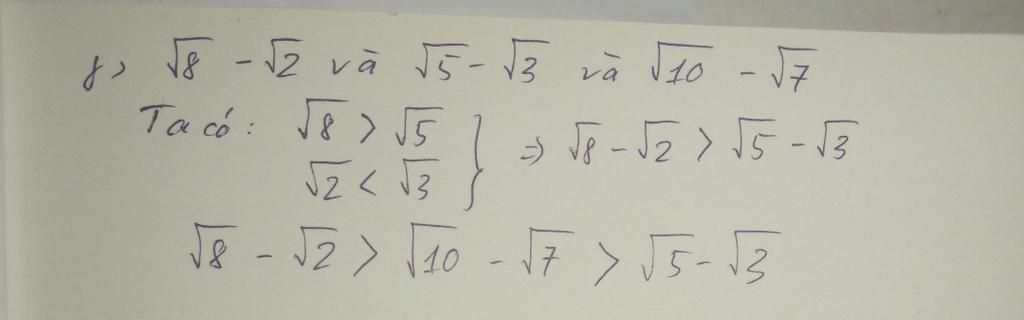 γ) √8 - √2 và √5 - √3 và √10 - √7
Ta có: √8 > √5 } => √8 - √2 > √5 - √3
√2 < √3
√8 - √2 > √10 - √7 > √5 - √3